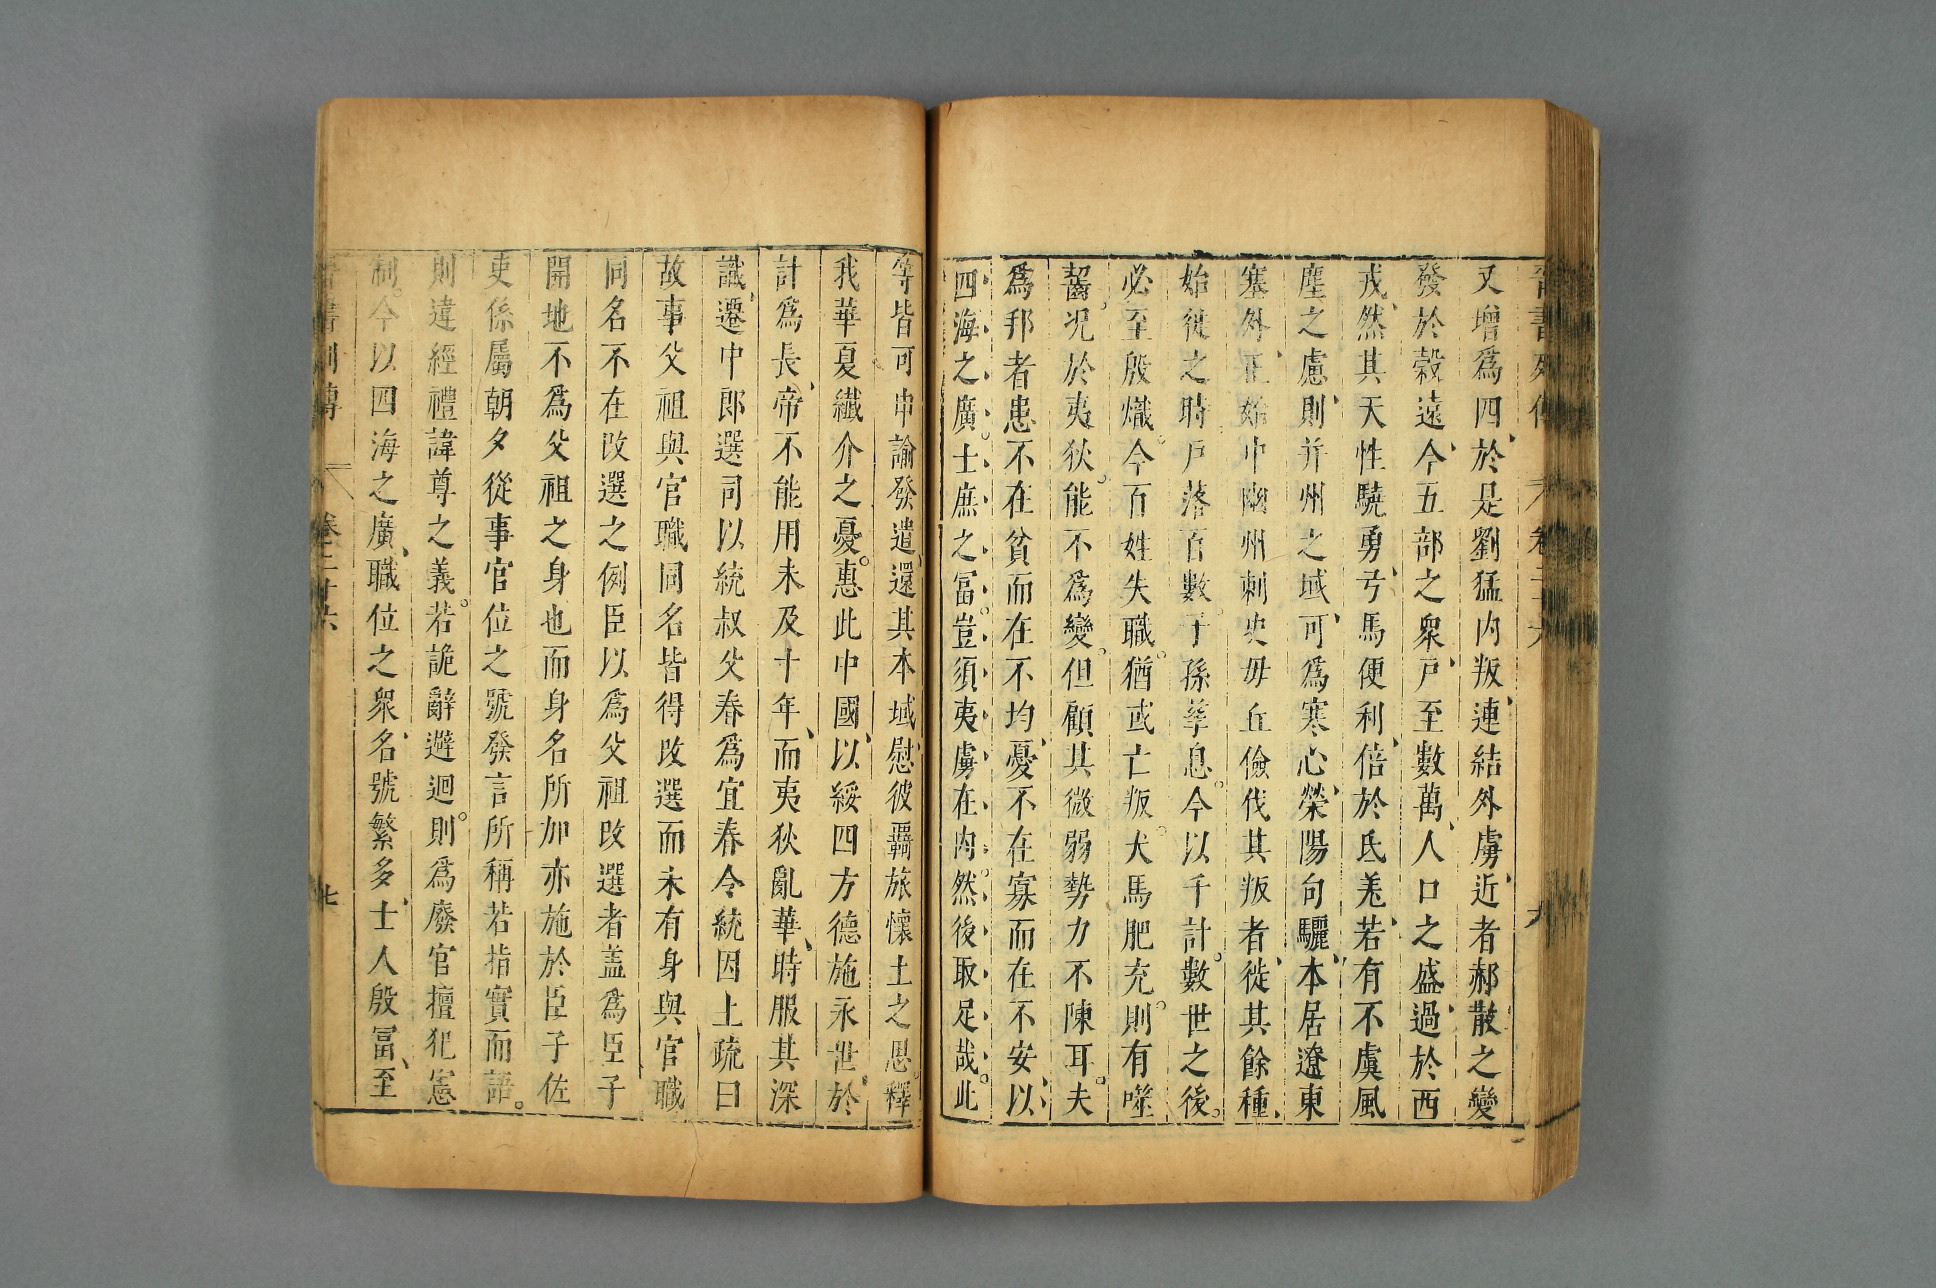 晉書列傳 卷二十六 九
又增爲四於是劉猛內叛連結外虜近者郝散之變
發於穀遠今五部之衆戸至數萬人口之盛過於西
戎然其天性驍勇弓馬便利倍於氐羌若有不虞風
塵之慮則并州之域可爲寒心滎陽句驪本居遼東
塞外正始中幽州刺史毋丘儉伐其叛者徙其餘種
始徙之時戸落百數子孫孳息今以千計數世之後
必至殷熾今百姓失職猶或亡叛犬馬肥充則有噬
齧况於夷狄能不爲變但顧其微弱勢力不陳耳夫
爲邦者患不在貧而在不均憂不在寡而在不安以
四海之廣士庶之富豈須夷虜在內然後取足哉此
等皆可申諭發遣還其本域慰彼羈旅懷土之思釋
我華夏纖介之憂惠此中國以綏四方德施永世於
計爲長帝不能用未及十年而夷狄亂華時服其深
識遷中郎選司以統叔父春爲宜春令統因上疏曰
故事父祖與官職同名皆得改選而未有身與官職
同名不在改選之例臣以爲父祖改選者盖爲臣子
開地不爲父祖之身也而身名所加亦施於臣子佐
吏係屬朝夕從事官位之號發言所稱若指實而語
則違經禮諱尊之義若詭辭避迴則爲廢官擅犯憲
制今以四海之廣職位之衆名號繁多士人殷富至
晉書列傳 卷二十六 七